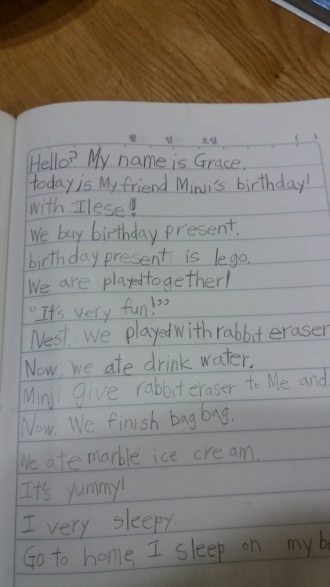 월 일 요일 ( )
Hello? My name is Grace.
today is My friend Minji's birthday!
with Ilese!
We buy birthday present.
birthday present is lego.
We are playedtogether!
"It's very fun!"
Nest. we played with rabbit eraser
Now, we ate drink water.
Minji give rabbit eraser to Me and
Now. We finish bag bag.
We ate marble ice cream.
It's yummy!
I very sleepy.
Go to home, I sleep on my